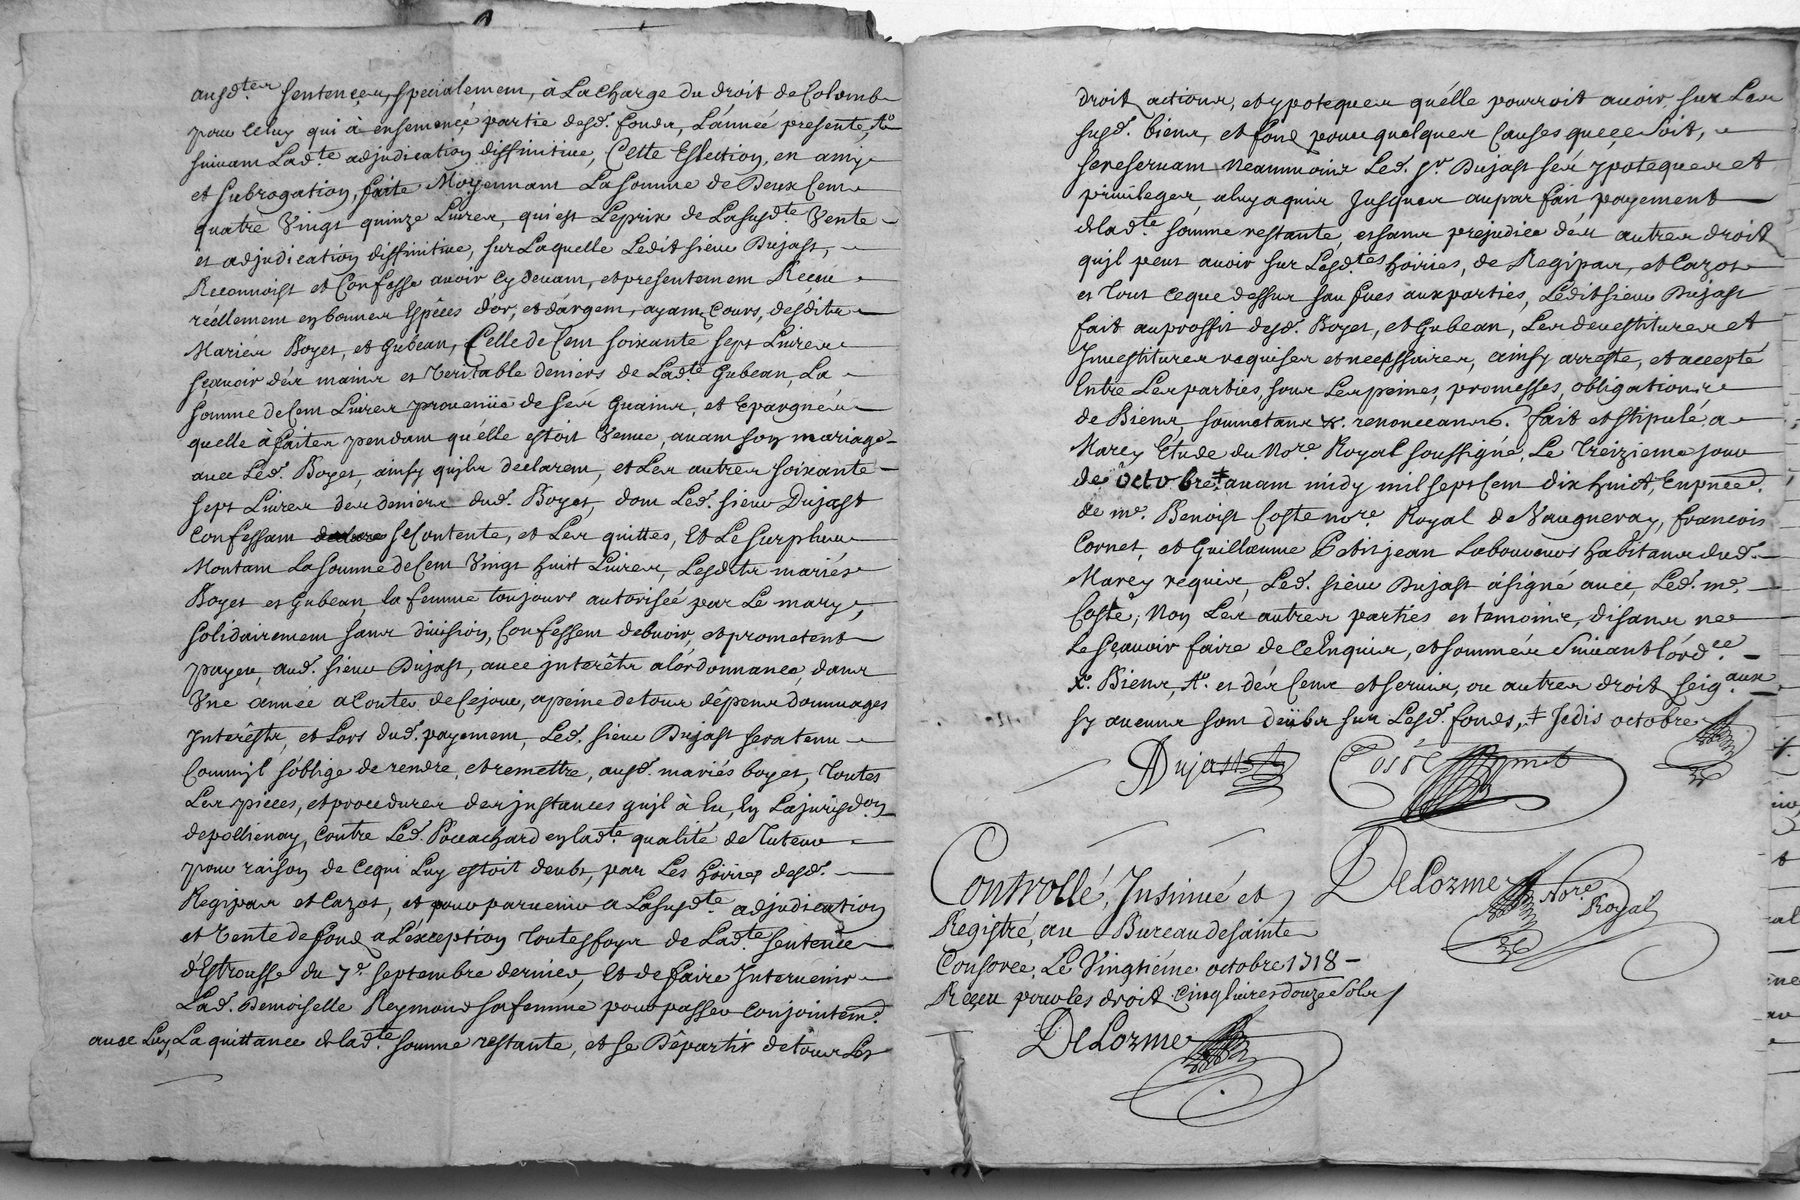 ausd.tes sentences, specialement, à La charge du droit de Colomb
pour celuy qui à ensemencé partie desd. fonds, L'année presente, &c
suivant Lad.te adjudication diffinitive, Cette Eslection, en amy
et subrogation, faite Moyennant La somme de Deux Cent
quatre Vingt quinze Livres, qui est Le prix de La susd.te Vente
et adjudication diffinitive, sur Laquelle Ledit sieur Dujast,
Reconnoist et Confesse avoir cy devant, et presentement Receu
réellement en bonnes Espèces d'or, et d'argent, ayant Cours, desdits
Mariés Boyet, et Gubean, Celle de Cent soixante sept Livres
sçavoir dés mains et veritable deniers de Lad.te Gubean, La
somme de Cent Livres provenüe de ses Guains, et Epargnés
quelle à faites pendant qu'elle estoit Venue, avant son mariage
avec Led. Boyet, ainsy quils declarent, et Les autres soixante
sept Livres des deniers dud. Boyet, dont Led. sieur Dujast
Confessant se Contente, et Les quittes, Et Le surplus
Montant La somme de Cent Vingt huit Livres, Lesdits mariés
Boyet et Gubean, la femme toujours autorisée par Le mary,
solidairement sans division, Confessent debvoir, et prometent
payer, aud. sieur Dujast, avec interêts a l'ordonnance, dans
Une année a Conter de Ce jour, a peine de tous dêpens dommages
Interêsts, et Lors dud. payement, Led. sieur Dujast sera tenu
Comm'jl s'oblige de rendre, et remettre, ausd. mariés boyet, Toutes
Les pieces, et procedures des jnstances qu'jl à eu, En La jurisd.on
de pollienay, Contre Led. Pocachard en lad.te qualité de Tuteur
pour raison de Ce qui Luy estoit deubt, par Les hoiries desd.
Regipas et Cazot, et pour parvenir a La susd.te adjudication
et Vente de fond a L'exception Toutesfoys de Lad.te Sentence
d'Estrousse du 7.e septembre dernier, Et de faire Intervenir
Lad. Demoiselle Reymond sa femme pour passer Conjointem.t
avec Luy, La quittance de lad.te somme restante, et se Départir de tous Les
droit, actions, et ypoteques qu'elle pourroit avoir, sur Les
susd. biens, et fond pour quelques Causes que ce soit,
se reservant Neanmoins Led. Sr. Dujast ses ypoteques et
privileges, a luy aquis Jusques au parfait payement
de lad.te somme restante, et sans prejudice dés autres droit
qu'jl peut avoir sur Lesd.tes hoiries, de Regipas, et Cazot
et tout ce que dessus sauf ues aux parties, Ledit sieur Dujast
fait au proffit desd. Boyet, et Gubean, Les devestitures et
Jnvestitures requises et necessaires, ainsy arresté, et accepté
Entre Les parties, sous Les peines, promesses, obligations
de Biens, soumetans &. renonceans &. fait et stipulé, a
Marcy Etude du No.re Royal soussigné, Le Treizieme jour
de octobre ‡ avant midy mil sept Cent dix huict, En pnce.
de me. Benoist Coste no.re Royal de Vaugneray, francois
Cornet, et Guillaume Petitjean Laboureurs habitans dud.
Marcy requis, Led. sieur Dujast à signé avec, Led. me.
Coste, Non Les autres parties et temoins, disans ne
Le sçavoir faire de Ce Enquis, et sommés Suivant l'ord.ce
X. Biens, &. et dés Cens et servis, ou autres droit seig.aux
sy aucuns sont deübs sur Lesd. fonds, ‡ Je dis octobre
Dujast Coste
DeLorme No.re Royal
Controllé, Insinué et
Registré, au Bureau de sainte
Consorce, Le Vingtiéme octobre 1718
Reçeu pour les droit Cinq livres douze Sols
DeLorme